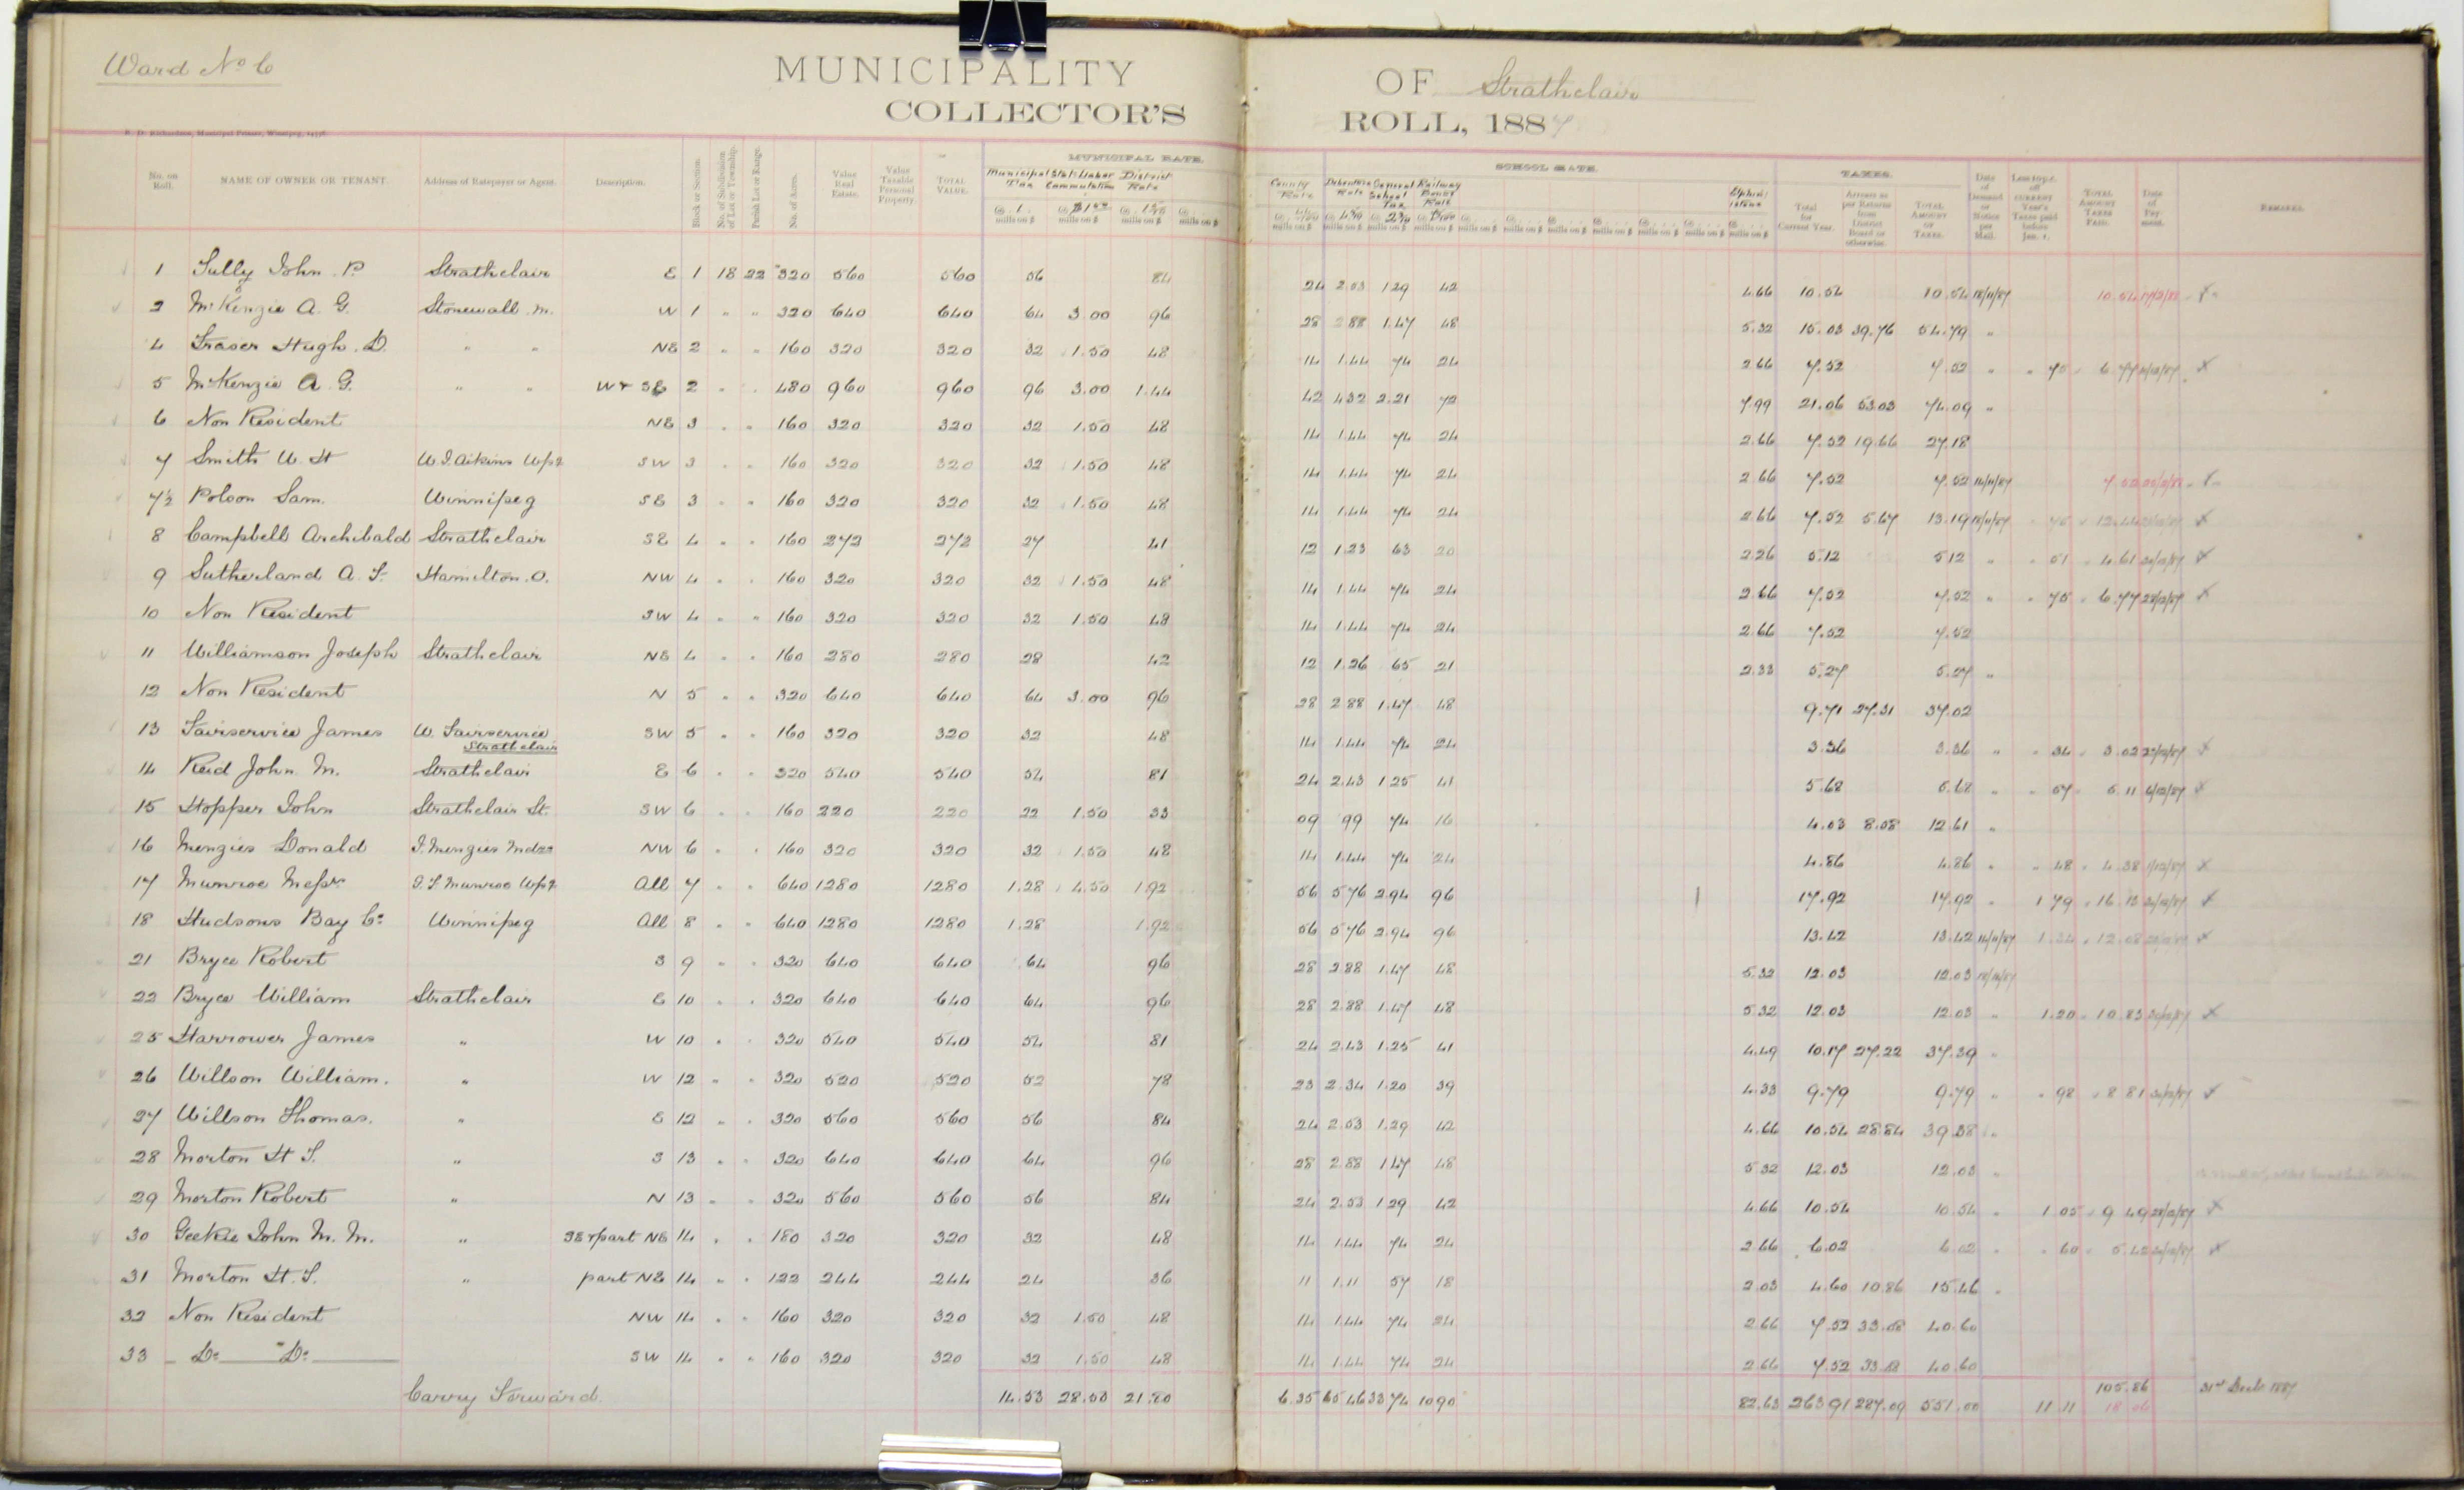 Ward No 6
MUNICIPALITY OF Strathclair
COLLECTOR'S ROLL, 1887
R. D. Richardson, Municipal Printer, Winnipeg
MUNICIPAL RATE. SCHOOL RATE. TAXES.
No. on Roll. NAME OF OWNER OR TENANT. Address of Ratepayer or Agent. Description. Block or Section. No. of Subdivision of Lot or Township. Parish Lot or Range. No. of Acres. Value Real Estate. Value Taxable Personal Property. TOTAL VALUE. Municipal Tax Stat. Labor Commutation District Rate County Rate Debenture Rate General School Tax Railway Bonus Rate Total for Current Year. Arrears as per Returns from District Board or otherwise. TOTAL AMOUNT OF TAXES. Date of Demand or Notice per Mail. Less 10 p.c. off CURRENT Year's Taxes paid before Jan. 1. TOTAL AMOUNT TAXES PAID. Date of Payment. REMARKS.
1 Tully John P. Strathclair E 1 18 22 320 560 560 56 84 24 2.53 1.29 42 4.66 10.54 10.54 18/11/87 10.54
2 McKenzie A. G. Stonewall M. W 1 " " 320 640 640 64 3.00 96 28 2.88 1.47 48 5.32 15.03 39.76 54.79 "
4 Fraser Hugh. D. " " NE 2 " " 160 320 320 32 1.50 48 14 1.44 74 24 2.66 7.52 7.52 " 75 6.77 X
5 McKenzie A. G. " " W & SE 2 " " 480 960 960 96 3.00 1.44 42 4.32 2.21 72 7.99 21.06 53.03 74.09 "
6 Non Resident NE 3 " " 160 320 320 32 1.50 48 14 1.44 74 24 2.66 7.52 19.66 27.18
7 Smith W. H W. J. Aikins Wpg SW 3 " " 160 320 320 32 1.50 48 14 1.44 74 24 2.66 7.52 7.52 14/11/87 7.52
7½ Polson Sam. Winnipeg SE 3 " " 160 320 320 32 1.50 48 14 1.44 74 24 2.66 7.52 5.67 13.19 18/11/87 75 12.44 X
8 Campbell Archibald Strathclair SE 4 " " 160 272 272 27 41 12 1.23 63 20 2.26 5.12 5.12 " 51 4.61 X
9 Sutherland A. F. Hamilton. O. NW 4 " " 160 320 320 32 1.50 48 14 1.44 74 24 2.66 7.52 7.52 " 75 6.77 X
10 Non Resident SW 4 " " 160 320 320 32 1.50 48 14 1.44 74 24 2.66 7.52 7.52
11 Williamson Joseph Strathclair NE 4 " " 160 280 280 28 42 12 1.26 65 21 2.33 5.27 5.27 "
12 Non Resident N 5 " " 320 640 640 64 3.00 96 28 2.88 1.47 48 9.71 27.31 37.02
13 Fairservice James W. Fairservice Strathclair SW 5 " " 160 320 320 32 48 14 1.44 74 24 3.36 3.36 " 34 3.02 X
14 Reid John. M. Strathclair E 6 " " 320 540 540 54 81 24 2.43 1.25 41 5.68 5.68 " 57 5.11 X
15 Hopper John Strathclair St. SW 6 " " 160 220 220 22 1.50 33 09 99 74 16 4.03 8.58 12.61 "
16 Menzies Donald J. Menzies NW 6 " " 160 320 320 32 1.50 48 14 1.44 74 24 4.86 4.86 " 48 4.38 1/12/87 X
17 Munroe Messrs J. F. Munroe Wpg All 7 " " 640 1280 1280 1.28 4.50 1.92 56 5.76 2.94 96 17.92 17.92 " 1 79 16.13 X
18 Hudsons Bay Co Winnipeg All 8 " " 640 1280 1280 1.28 1.92 56 5.76 2.94 96 13.42 13.42 14/11/87 1.34 12.08 X
21 Bryce Robert S 9 " " 320 640 640 64 96 28 2.88 1.47 48 5.32 12.03 12.03 18/11/87
22 Bryce William Strathclair E 10 " " 320 640 640 64 96 28 2.88 1.47 48 5.32 12.03 12.03 " 1.20 10.83 X
25 Harrower James " W 10 " " 320 540 540 54 81 24 2.43 1.25 41 4.49 10.17 27.22 37.39 "
26 Willson William. " W 12 " " 320 520 520 52 78 23 2.34 1.20 39 4.33 9.79 9.79 " 98 8.81 X
27 Willson Thomas. " E 12 " " 320 560 560 56 84 24 2.53 1.29 42 4.66 10.54 28.84 39.38 "
28 Morton H T. " S 13 " " 320 640 640 64 96 28 2.88 1.47 48 5.32 12.03 12.03 "
29 Morton Robert " N 13 " " 320 560 560 56 84 24 2.53 1.29 42 4.66 10.54 10.54 " 1.05 9.49 X
30 Geekie John M. M. " SE & part NE 14 " " 180 320 320 32 48 14 1.44 74 24 2.66 6.02 6.02 " 60 5.42 X
31 Morton H. T. " part NE 14 " " 122 244 244 24 36 11 1.11 57 18 2.03 4.60 10.86 15.46 "
32 Non Resident NW 14 " " 160 320 320 32 1.50 48 14 1.44 74 24 2.66 7.52 33.08 40.60
33 Do Do SW 14 " " 160 320 320 32 1.50 48 14 1.44 74 24 2.66 7.52 33.08 40.60
105.86 31st Decbr 1887
Carry Forward. 14.53 28.50 21.80 6.35 65.46 33.74 10.90 82.63 263.91 287.09 551.00 11.11 18.06